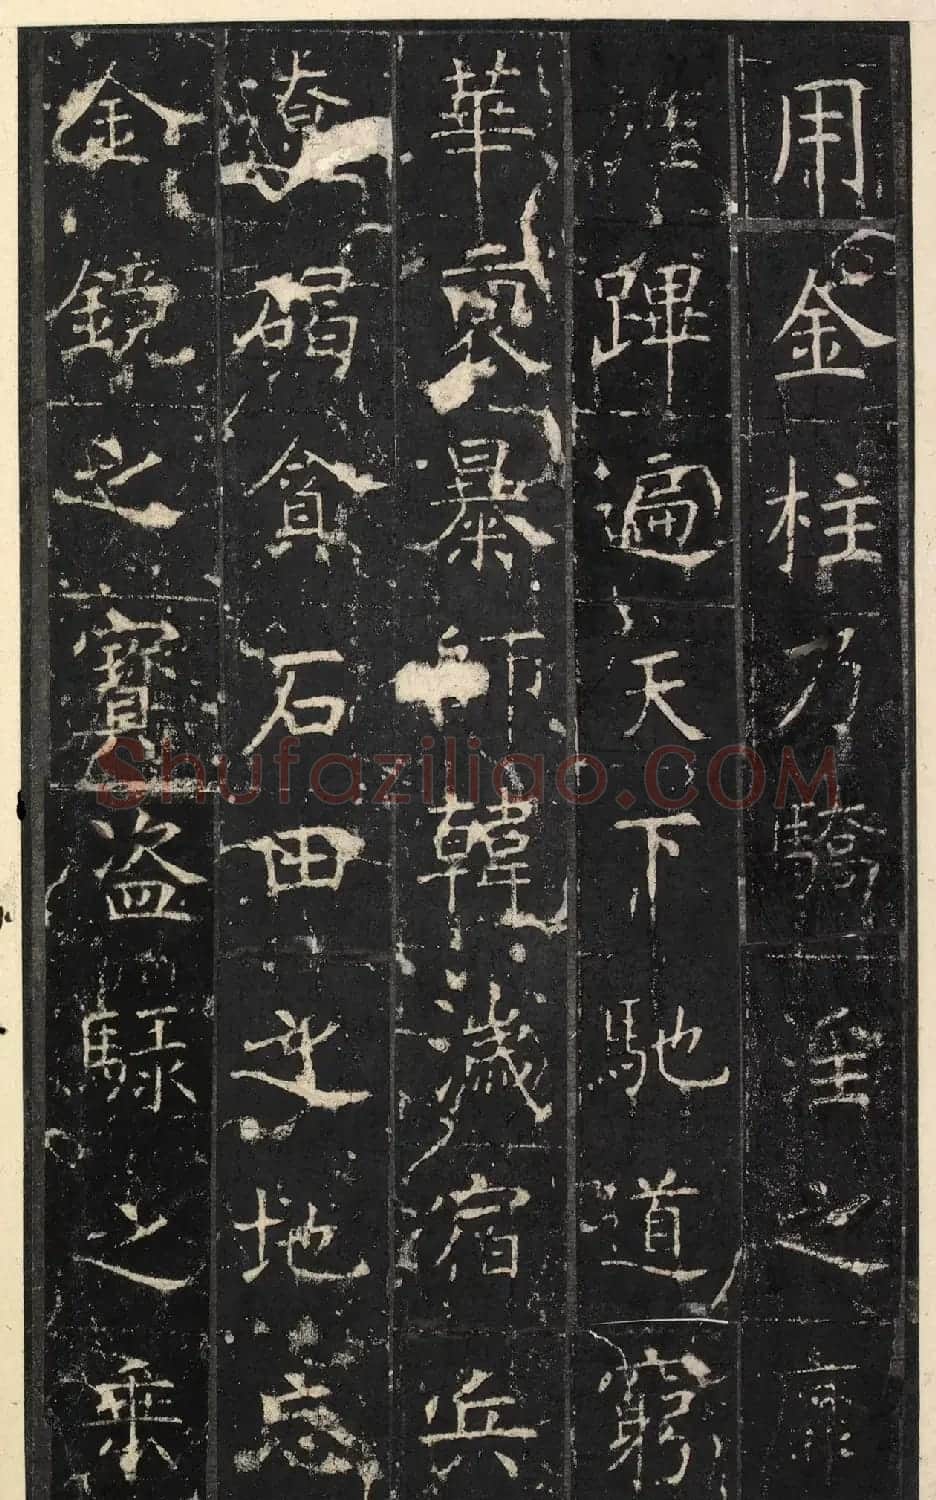 用金柱乃驕皇之
蹕遍天下馳道窮
華裔暴師韓濊宿兵
遼碣貪石田之地忘
金鏡之寶盜騄之乘
Shufaziliao.COM